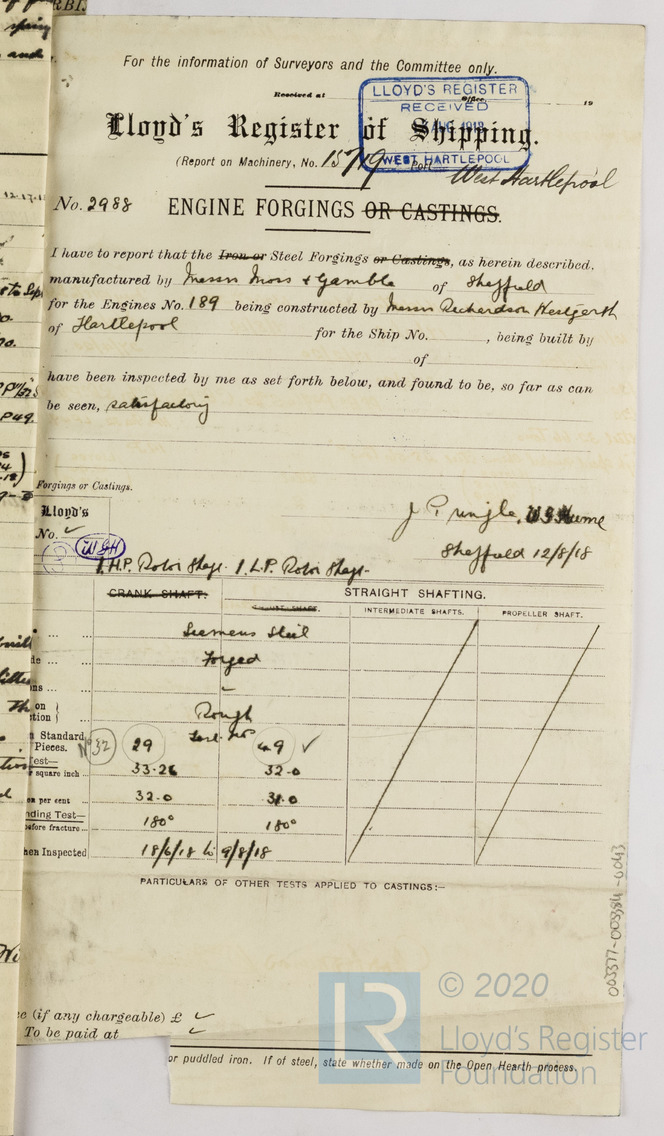 For the information of Surveyors and the Committee only.
Received at Office 19
LLOYD'S REGISTER
RECEIVED
1918
WEST HARTLEPOOL
Lloyd's Register of Shipping.
(Report on Machinery, No. 15719 Port West Hartlepool
No. 2988 ENGINE FORGINGS OR CASTINGS.
I have to report that the Iron or Steel Forgings or Castings, as herein described,
manufactured by Messrs Moss & Gamble of Sheffield
for the Engines No. 189 being constructed by Messrs Richardson Westgarth
of Hartlepool for the Ship No. , being built by
of
have been inspected by me as set forth below, and found to be, so far as can
be seen, satisfactory
Forgings or Castings.
Lloyd's
No. ✓
J Pringle,
Sheffield 12/8/18
1 H.P. Rotor Shaft. 1 L.P. Rotor Shaft.
CRANK SHAFT. STRAIGHT SHAFTING.
INTERMEDIATE SHAFTS. PROPELLER SHAFT.
Siemens Steel
Forged
Rough
Standard
Pieces. No 32 29 49 ✓
Test—
square inch 33.26 32.0
per cent 32.0 31.0
ding Test—
before fracture 180° 180°
hen Inspected 18/6/18 to 9/8/18
PARTICULARS OF OTHER TESTS APPLIED TO CASTINGS:—
003377-003384-0043
(if any chargeable) £ ✓
To be paid at ✓
or puddled iron. If of steel, state whether made on the Open Hearth process.
© 2020
LR
Lloyd's Register
Foundation